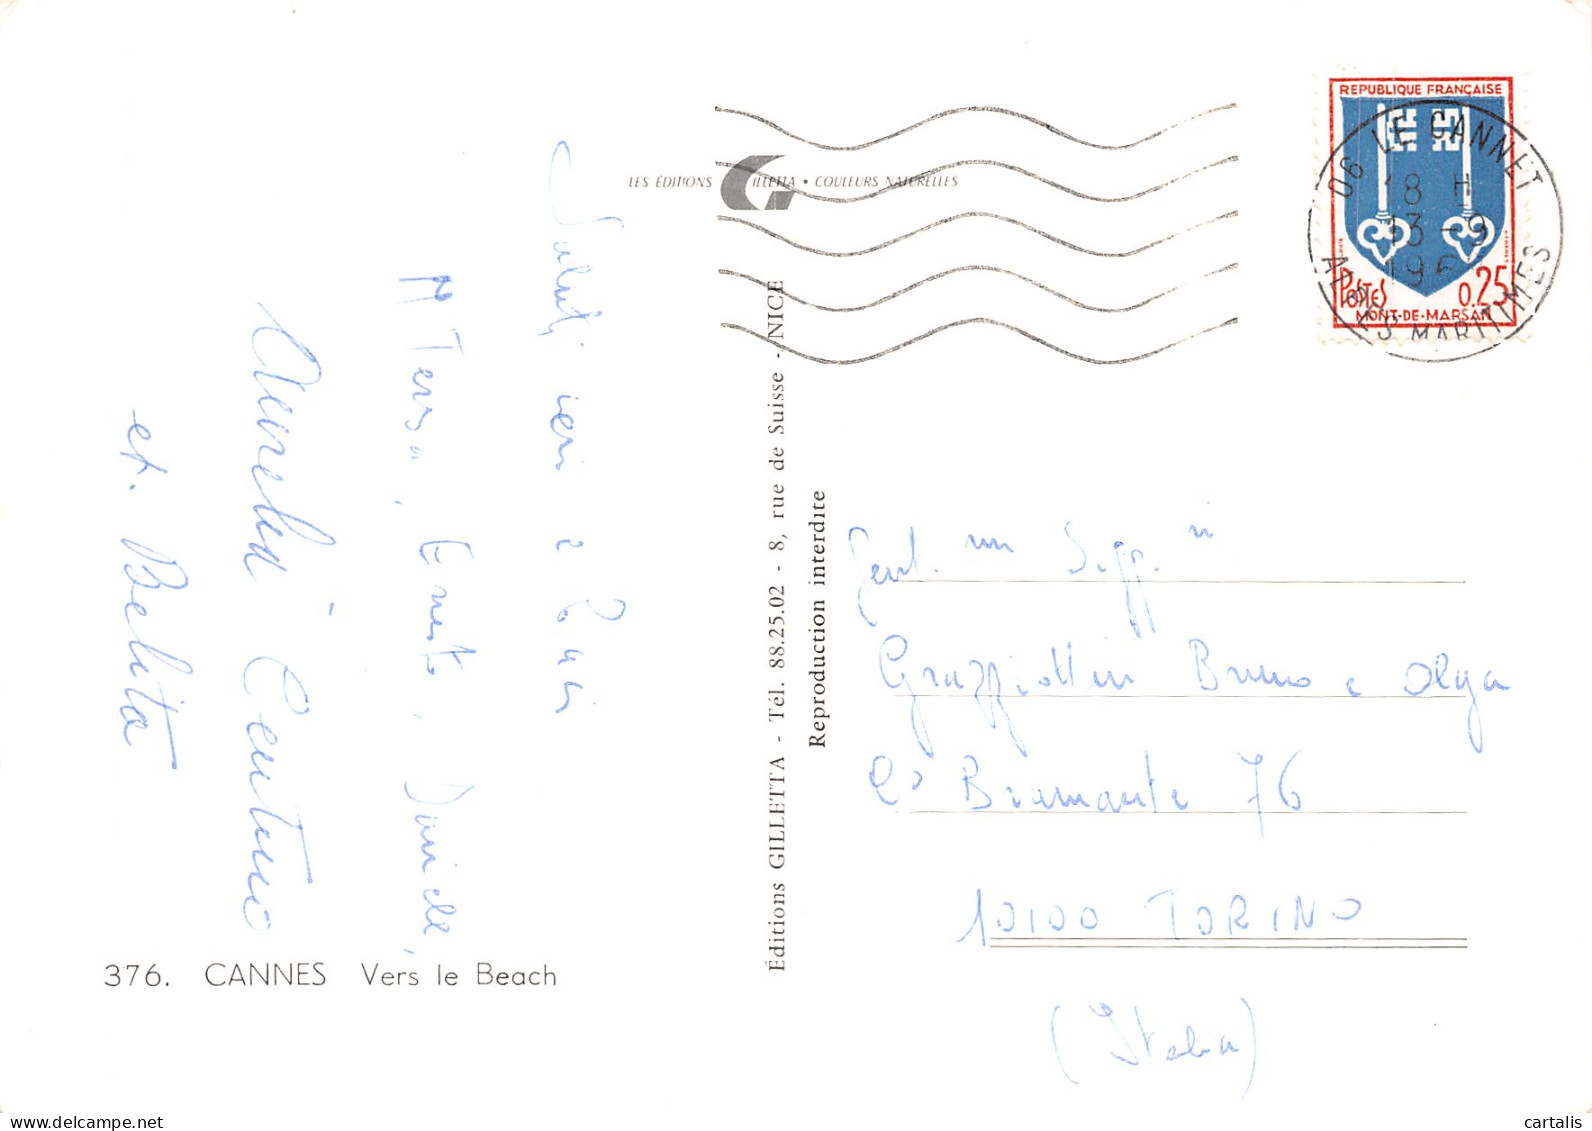 LES ÉDITIONS GILLETTA • COULEURS NATURELLES
REPUBLIQUE FRANÇAISE
POSTES 0.25
MONT-DE-MARSAN
06 LE CANNET
18 H
13-9
196
ALPES MARITIMES
Saluti cari e baci
M Teresa, Ernesto, Daniele,
Centurio
et. Belita
376. CANNES Vers le Beach
Éditions GILLETTA - Tél. 88.25.02 - 8, rue de Suisse - NICE
Reproduction interdite
Gent.mi Sigg.ri
Grazziottin Bruno e Olga
Co Bramante 76
10100 TORINO
(Italia)
cartalis